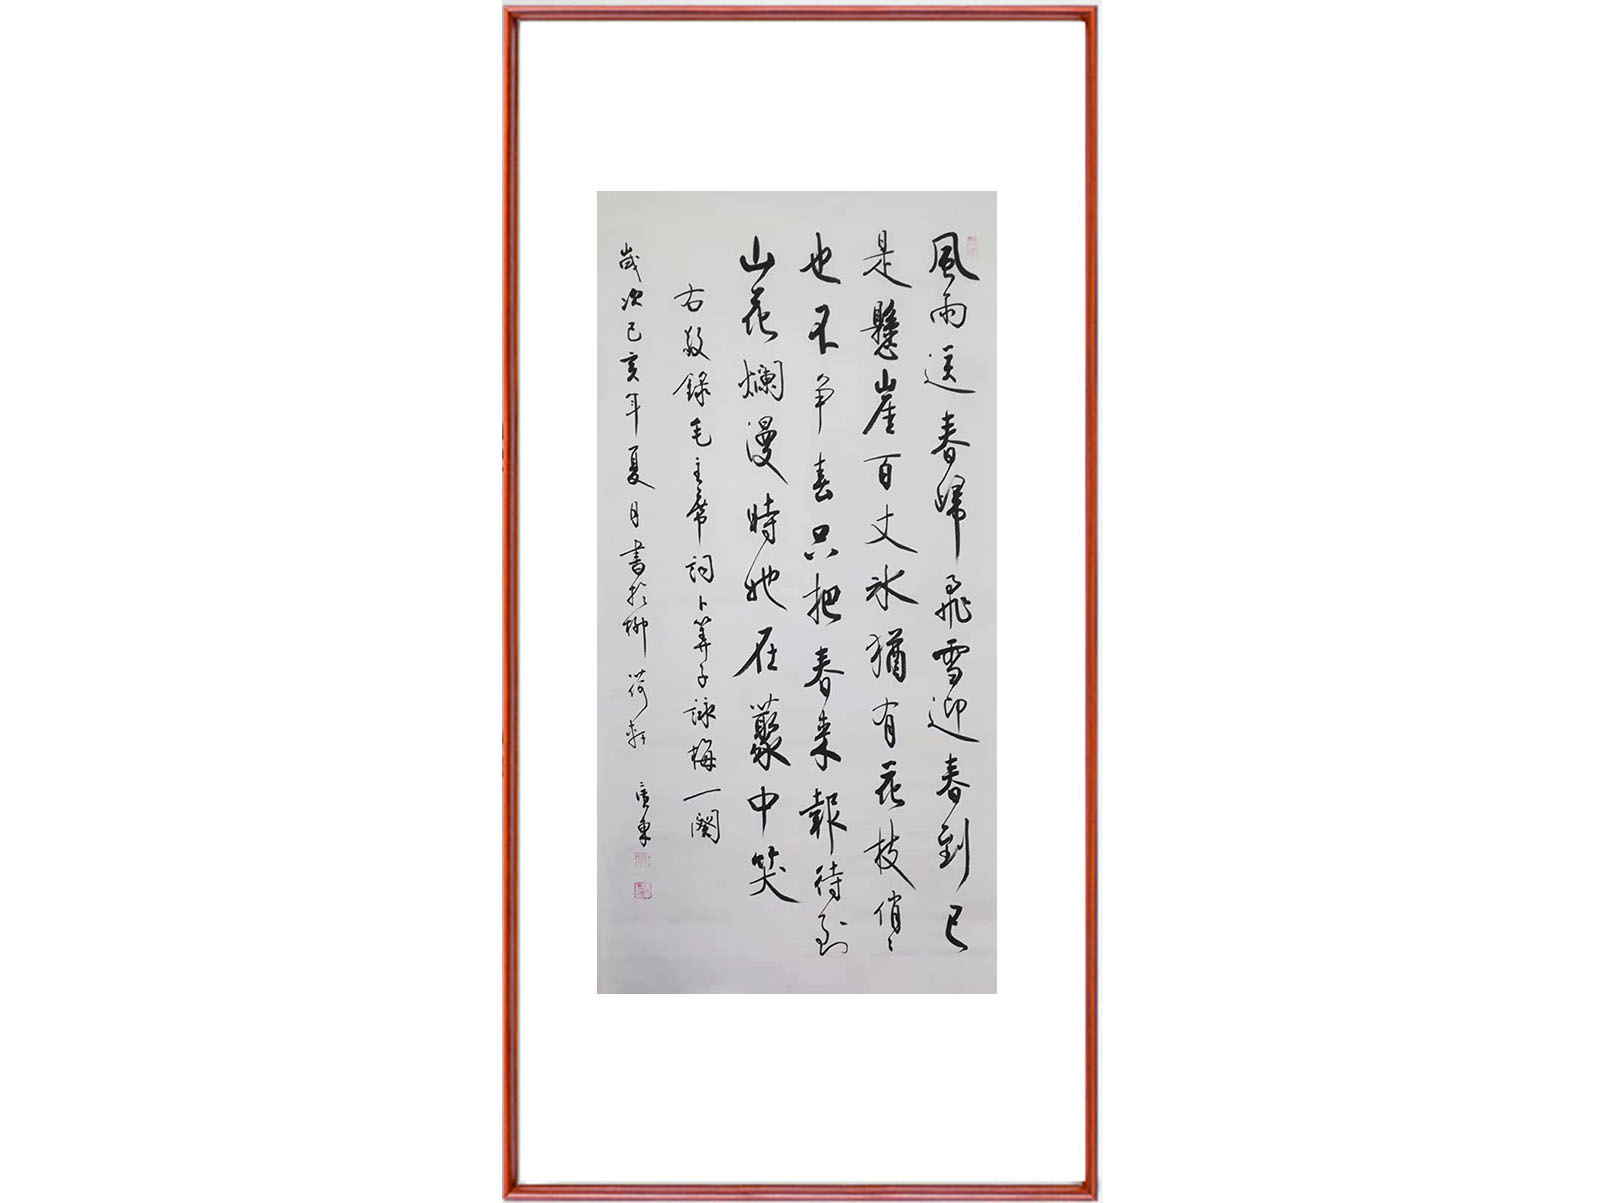 風雨送春歸飛雪迎春到已
是懸崖百丈冰猶有花枝俏〻
也不争春只把春来報待到
山花爛漫時她在叢中笑
右敬錄毛主席詞卜算子詠梅一闋
歲次己亥年夏月書於柳荷軒
廣東